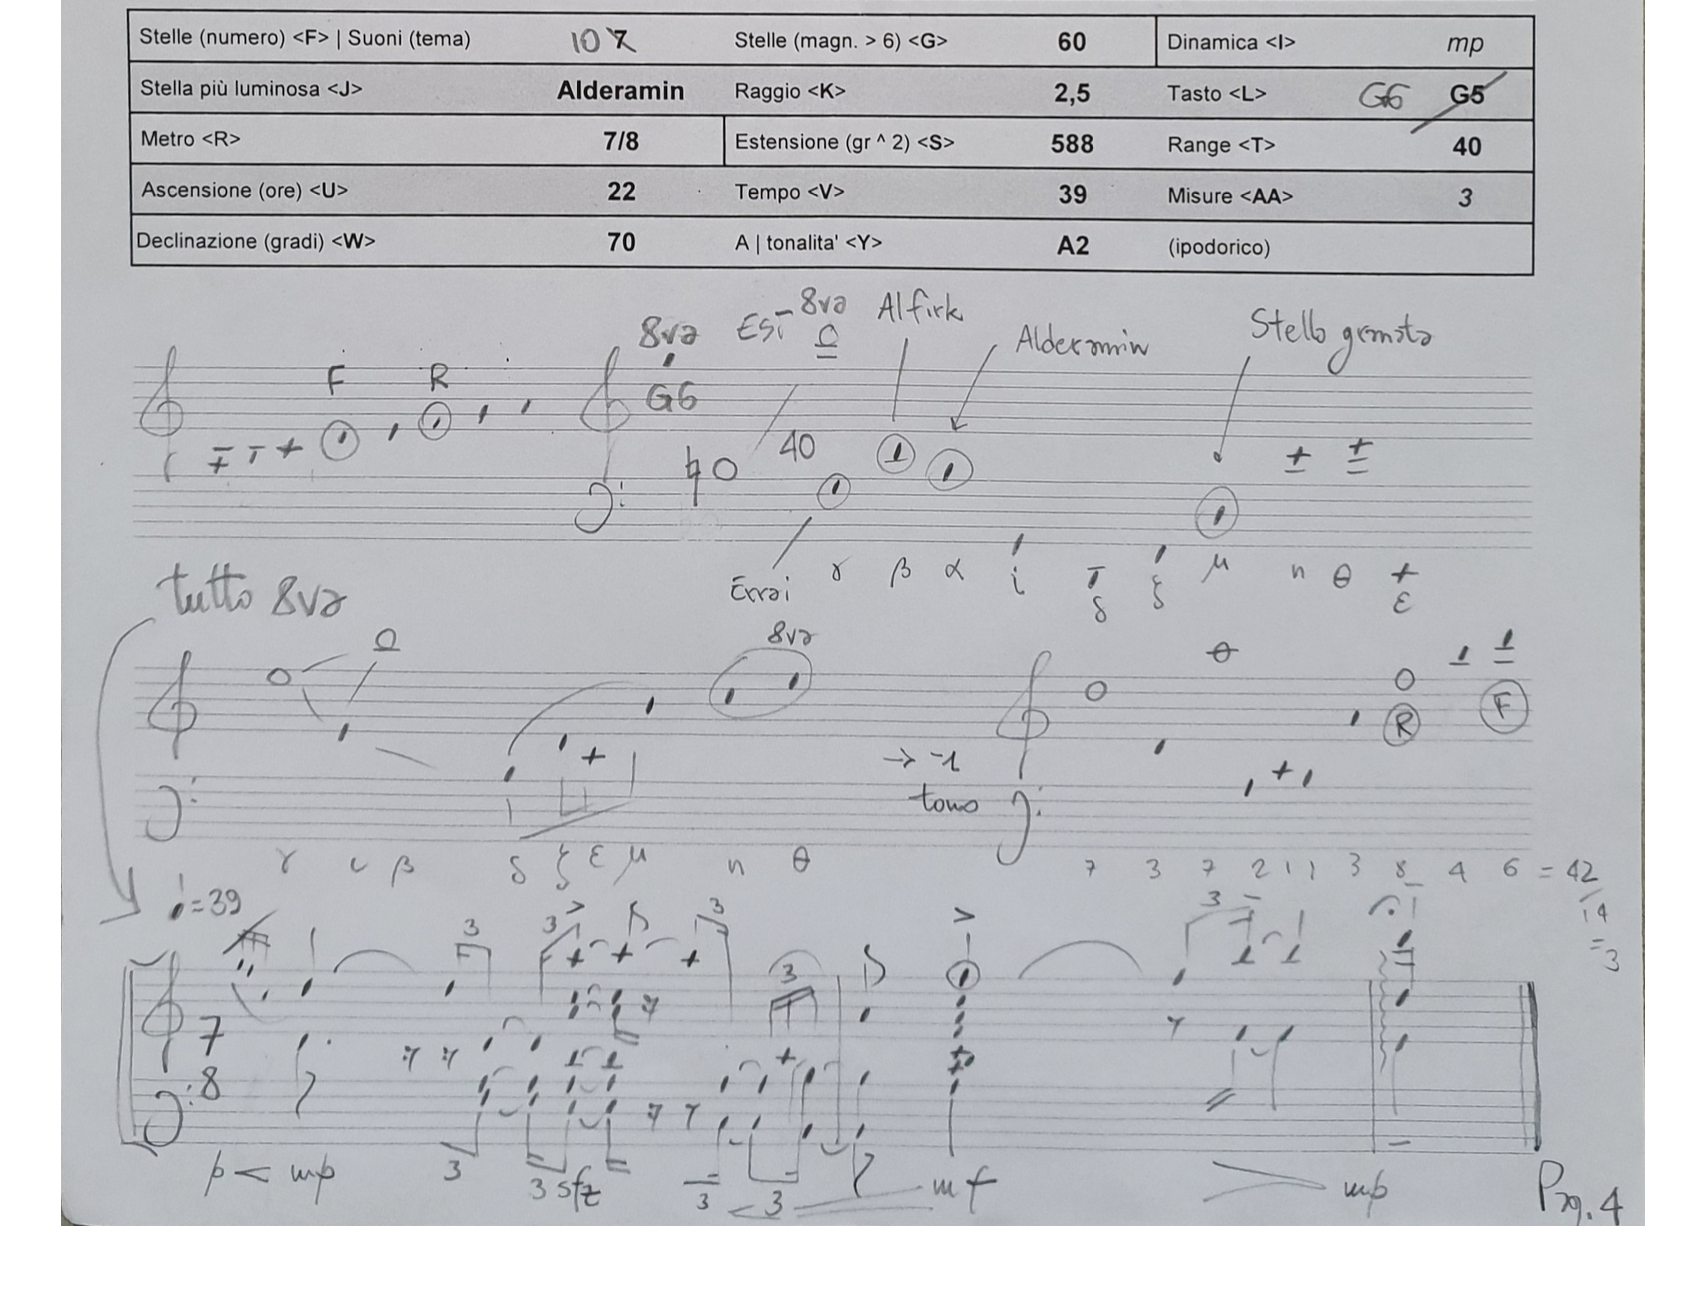 Stelle (numero) <F> | Suoni (tema) 10 7 Stelle (magn. > 6) <G> 60 Dinamica <I> mp
Stella più luminosa <J> Alderamin Raggio <K> 2,5 Tasto <L> G6 G5
Metro <R> 7/8 Estensione (gr ^ 2) <S> 588 Range <T> 40
Ascensione (ore) <U> 22 Tempo <V> 39 Misure <AA> 3
Declinazione (gradi) <W> 70 A | tonalita' <Y> A2 (ipodorico)
8va Est 8va Alfirk Alderamin Stella granata
F R G6
40
Errai γ β α ι δ ζ μ η θ ε
tutto 8va
8va
R F
→ -1
tono
γ ι β δ ζ ε μ η θ 7 3 7 2 1 1 3 8 4 6 = 42
14
= 3
♩=39 3 3 3 3 > 3
3
7
8
p < mp 3 3 sfz 3 < 3 mf mp
Pag. 4